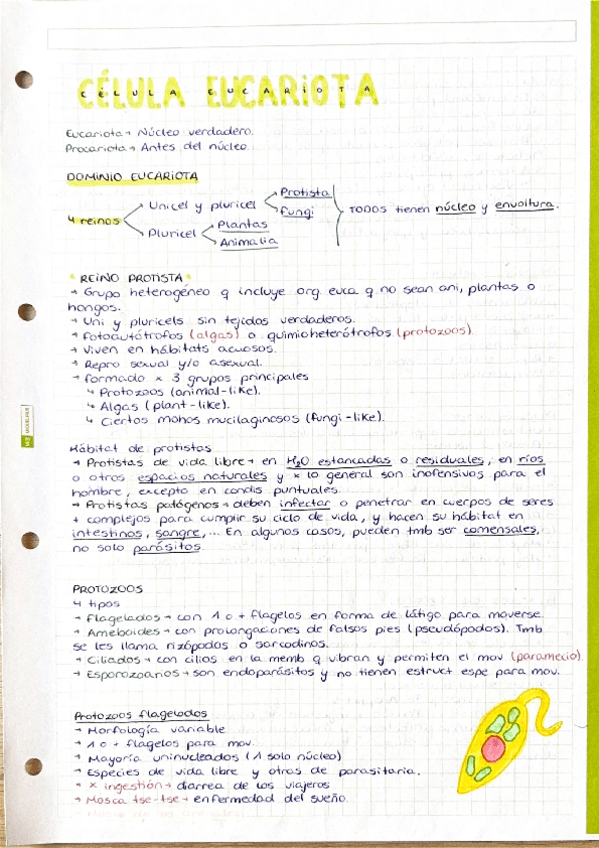 CÉLULA EUCARIOTA
Eucariota → Núcleo verdadero.
Procariota → Antes del núcleo.
DOMINIO EUCARIOTA
4 reinos
Unicel y pluricel
Protista
Fungi
Pluricel
Plantas
Animalia
TODOS tienen núcleo y envoltura.
REINO PROTISTA
→ Grupo heterogéneo q incluye org euca q no sean ani, plantas o
hongos.
→ Uni y pluricels sin tejidos verdaderos.
→ Fotoautótrofos (algas) o quimioheterótrofos (protozoos).
→ Viven en hábitats acuosos.
→ Repro sexual y/o asexual.
→ Formado x 3 grupos principales
↳ Protozoos (animal-like).
↳ Algas (plant-like).
↳ Ciertos mohos mucilaginosos (fungi-like).
Hábitat de protistas
→ Protistas de vida libre → en H2O estancadas o residuales, en ríos
o otros espacios naturales y x lo general son inofensivos para el
hombre, excepto en condis puntuales.
→ Protistas patógenos → deben infectar o penetrar en cuerpos de seres
+ complejos para cumplir su ciclo de vida, y hacen su hábitat en
intestinos, sangre,... En algunos casos, pueden tmb ser comensales,
no solo parásitos.
PROTOZOOS
4 tipos
→ Flagelados → con 1 o + flagelos en forma de látigo para moverse.
→ Ameboides → con prolongaciones de falsos pies (pseudópodos). Tmb
se les llama rizópodos o sarcodinos.
→ Ciliados → con cilios en la memb q vibran y permiten el mov (paramecio).
→ Esporozoarios → son endoparásitos y no tienen estruct espe para mov.
Protozoos flagelados
→ Morfología variable
→ 1 o + flagelos para mov.
→ Mayoría uninucleados (1 solo núcleo)
→ Especies de vida libre y otras de parasitaria.
→ x ingestión → diarrea de los viajeros
→ Mosca tse-tse → enfermedad del sueño.